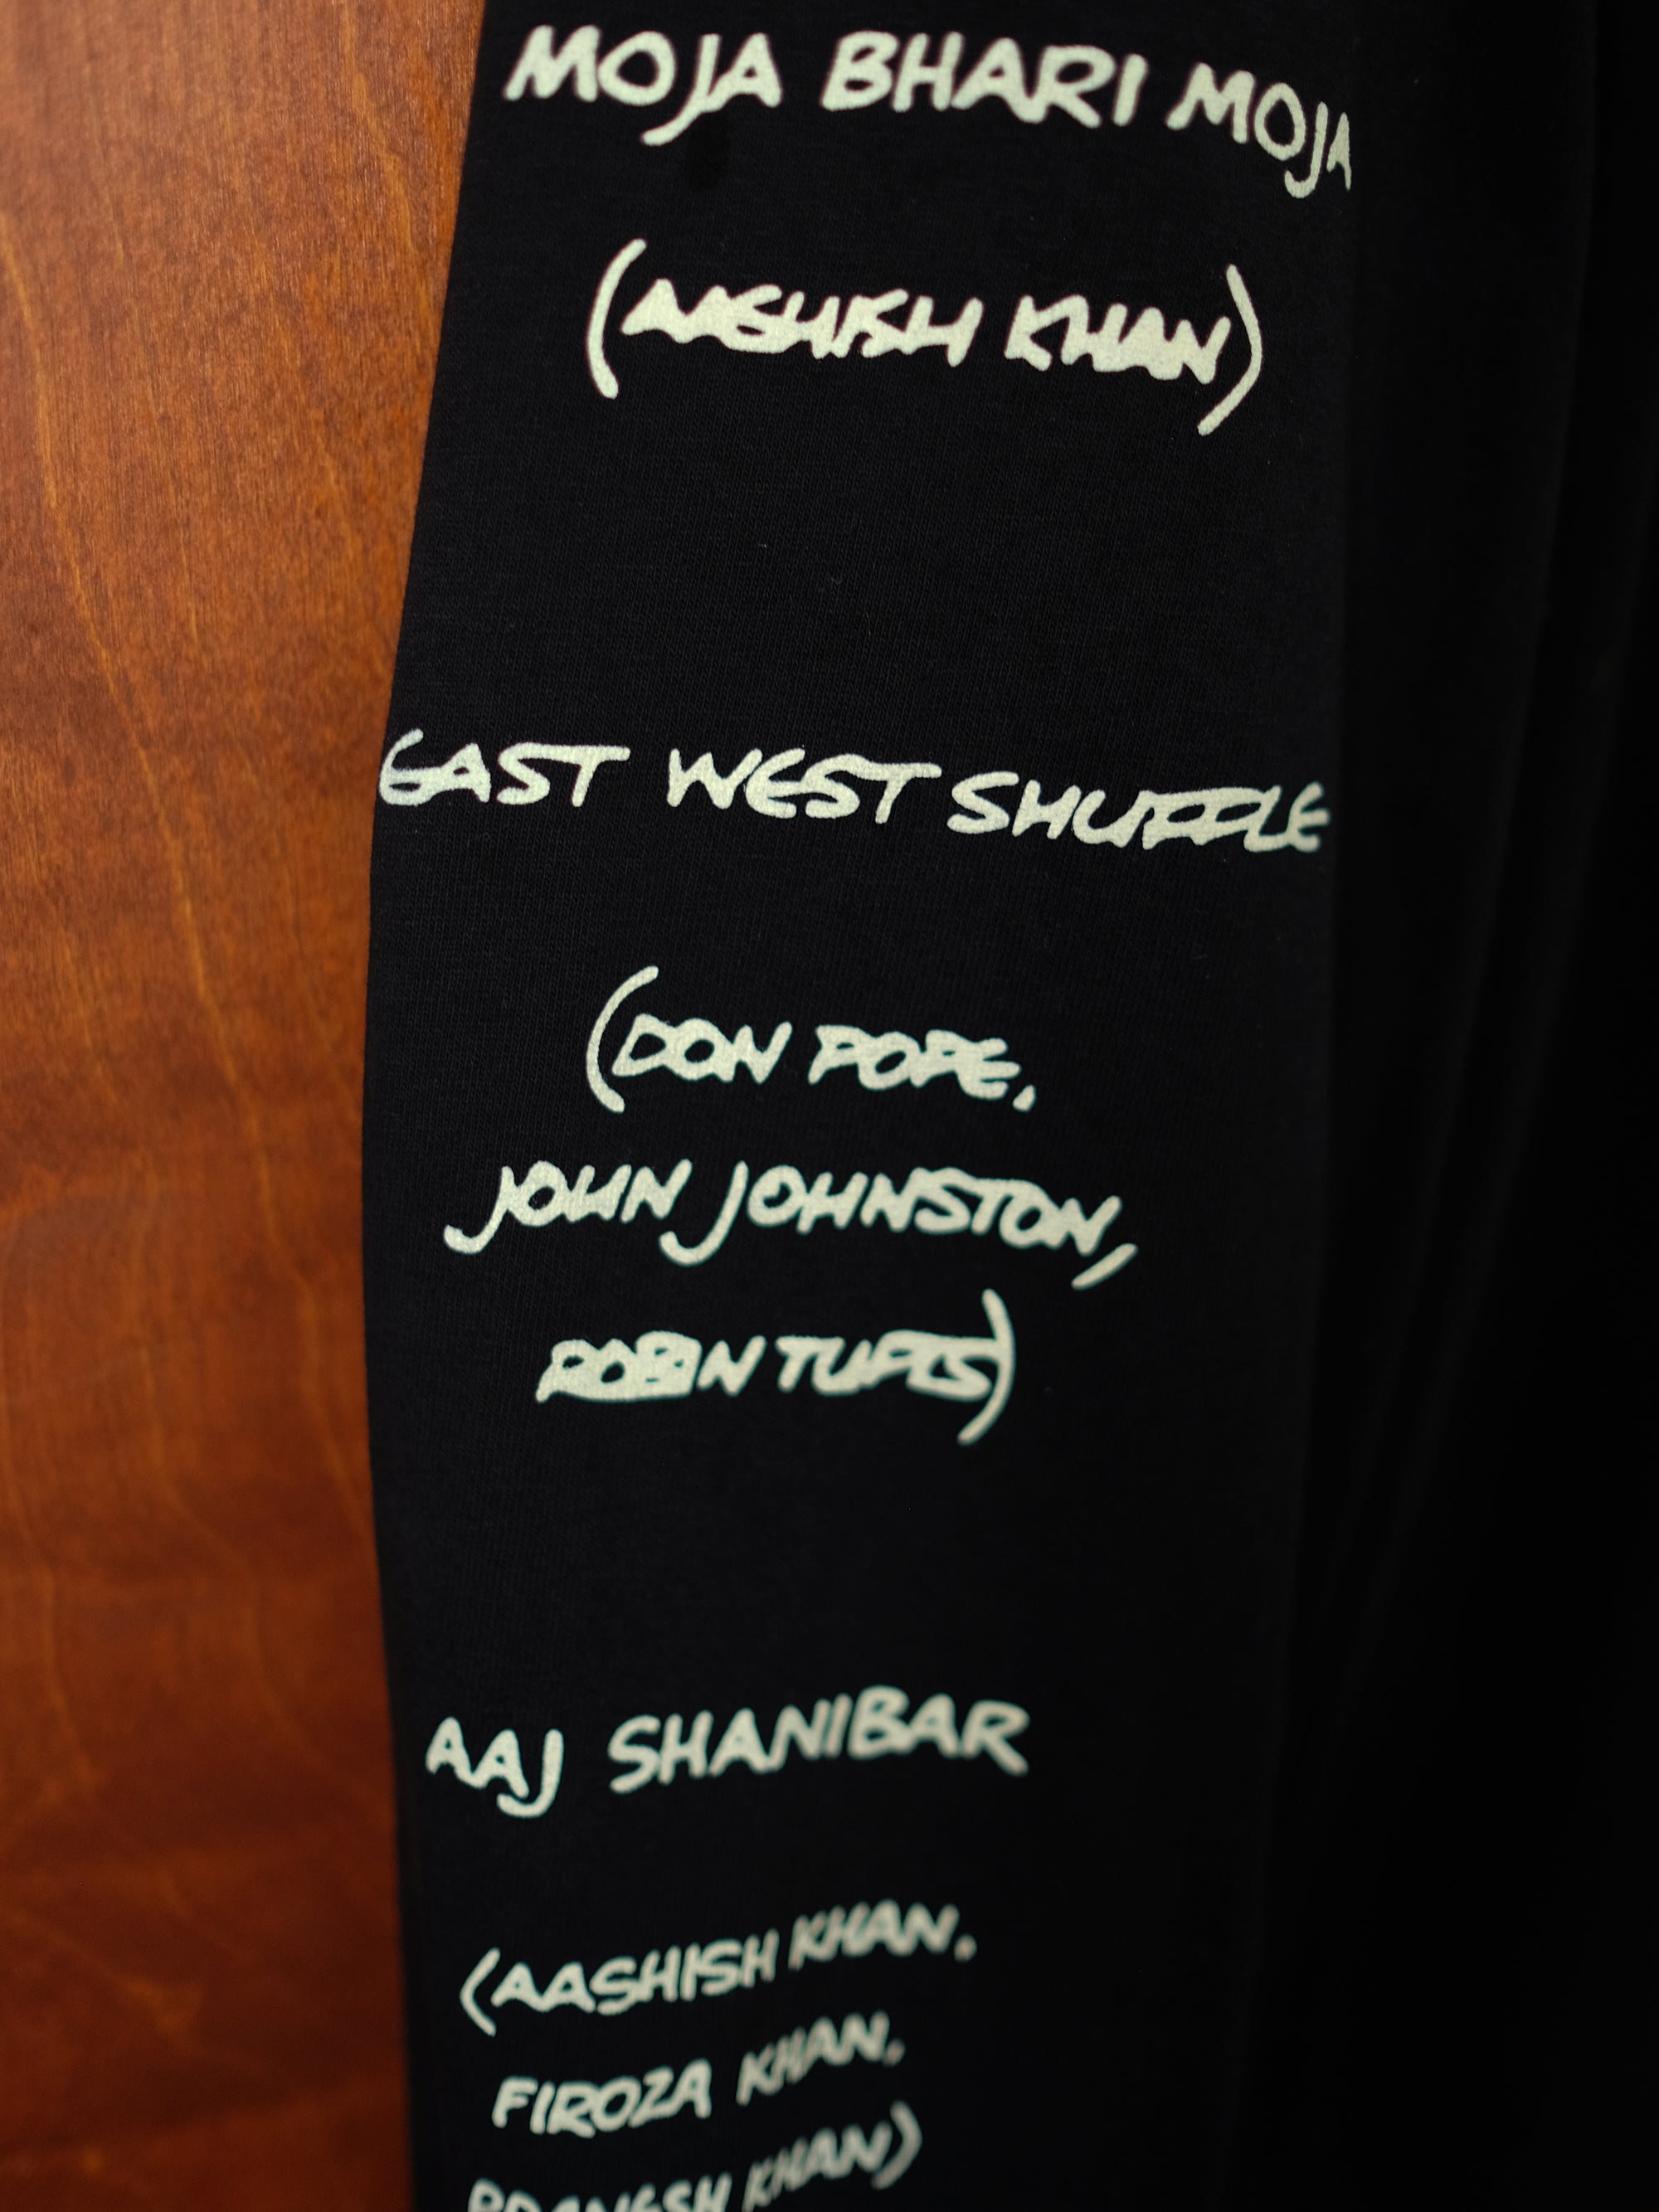 MOJA BHARI MOJA
(AASHISH KHAN)
EAST WEST SHUFFLE
(DON POPE,
JOHN JOHNSTON,
ROBIN TUFTS)
AAJ SHANIBAR
(AASHISH KHAN,
FIROZA KHAN,
PRANESH KHAN)